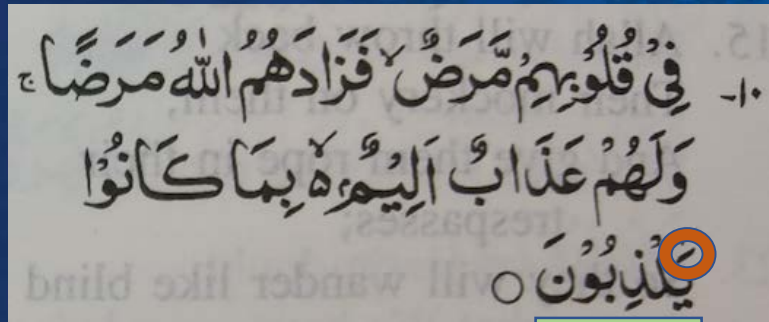 ١٠- فِيْ قُلُوْبِهِمْ مَّرَضٌ ۙ فَزَادَهُمُ اللّٰهُ مَرَضًا ۚ
وَلَهُمْ عَذَابٌ اَلِيْمٌۢ ۙ بِمَا كَانُوْا
يَكْذِبُوْنَ ○